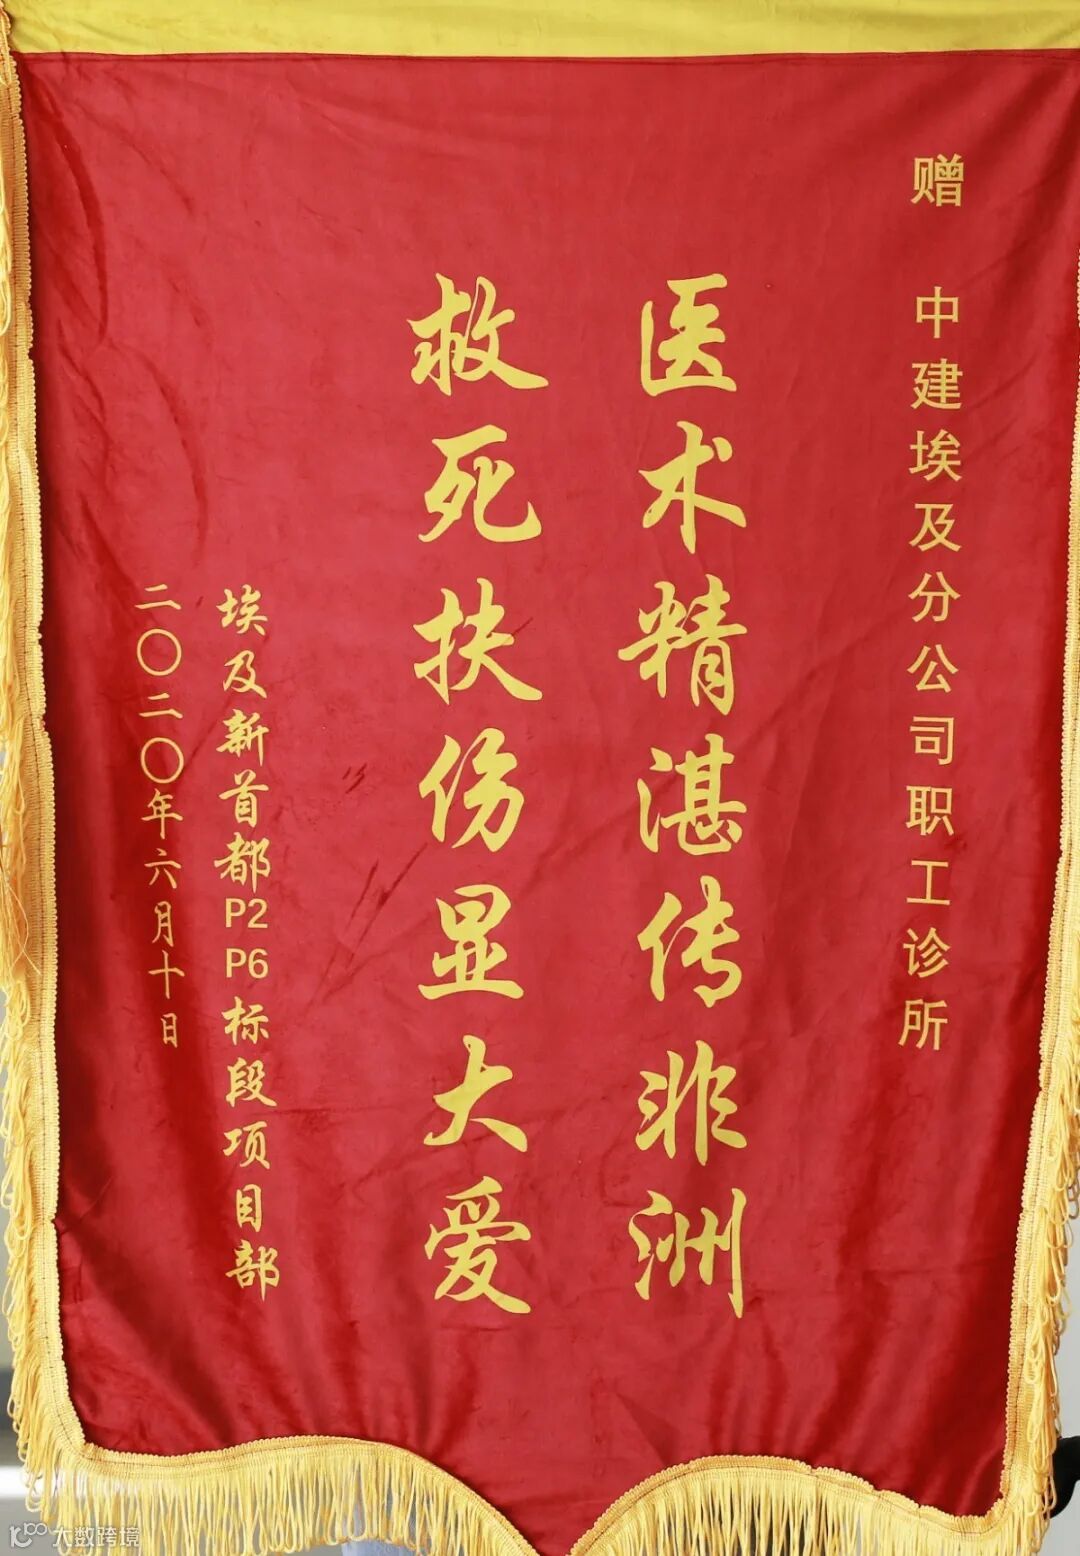 赠 中建埃及分公司职工诊所
医术精湛传非洲
救死扶伤显大爱
埃及新首都P2P6标段项目部
二〇二〇年六月十日
大数跨境